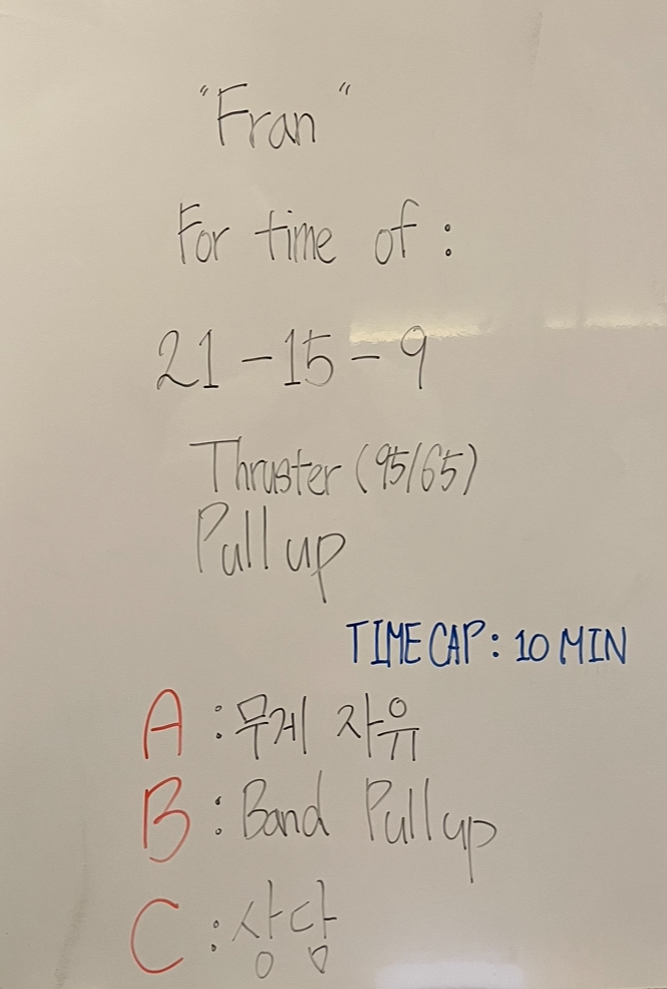 "Fran"
For time of :
21 - 15 - 9
Thruster (95/65)
Pull up
TIME CAP : 10 MIN
A : 무게 자유
B : Band Pull up
C : 상담